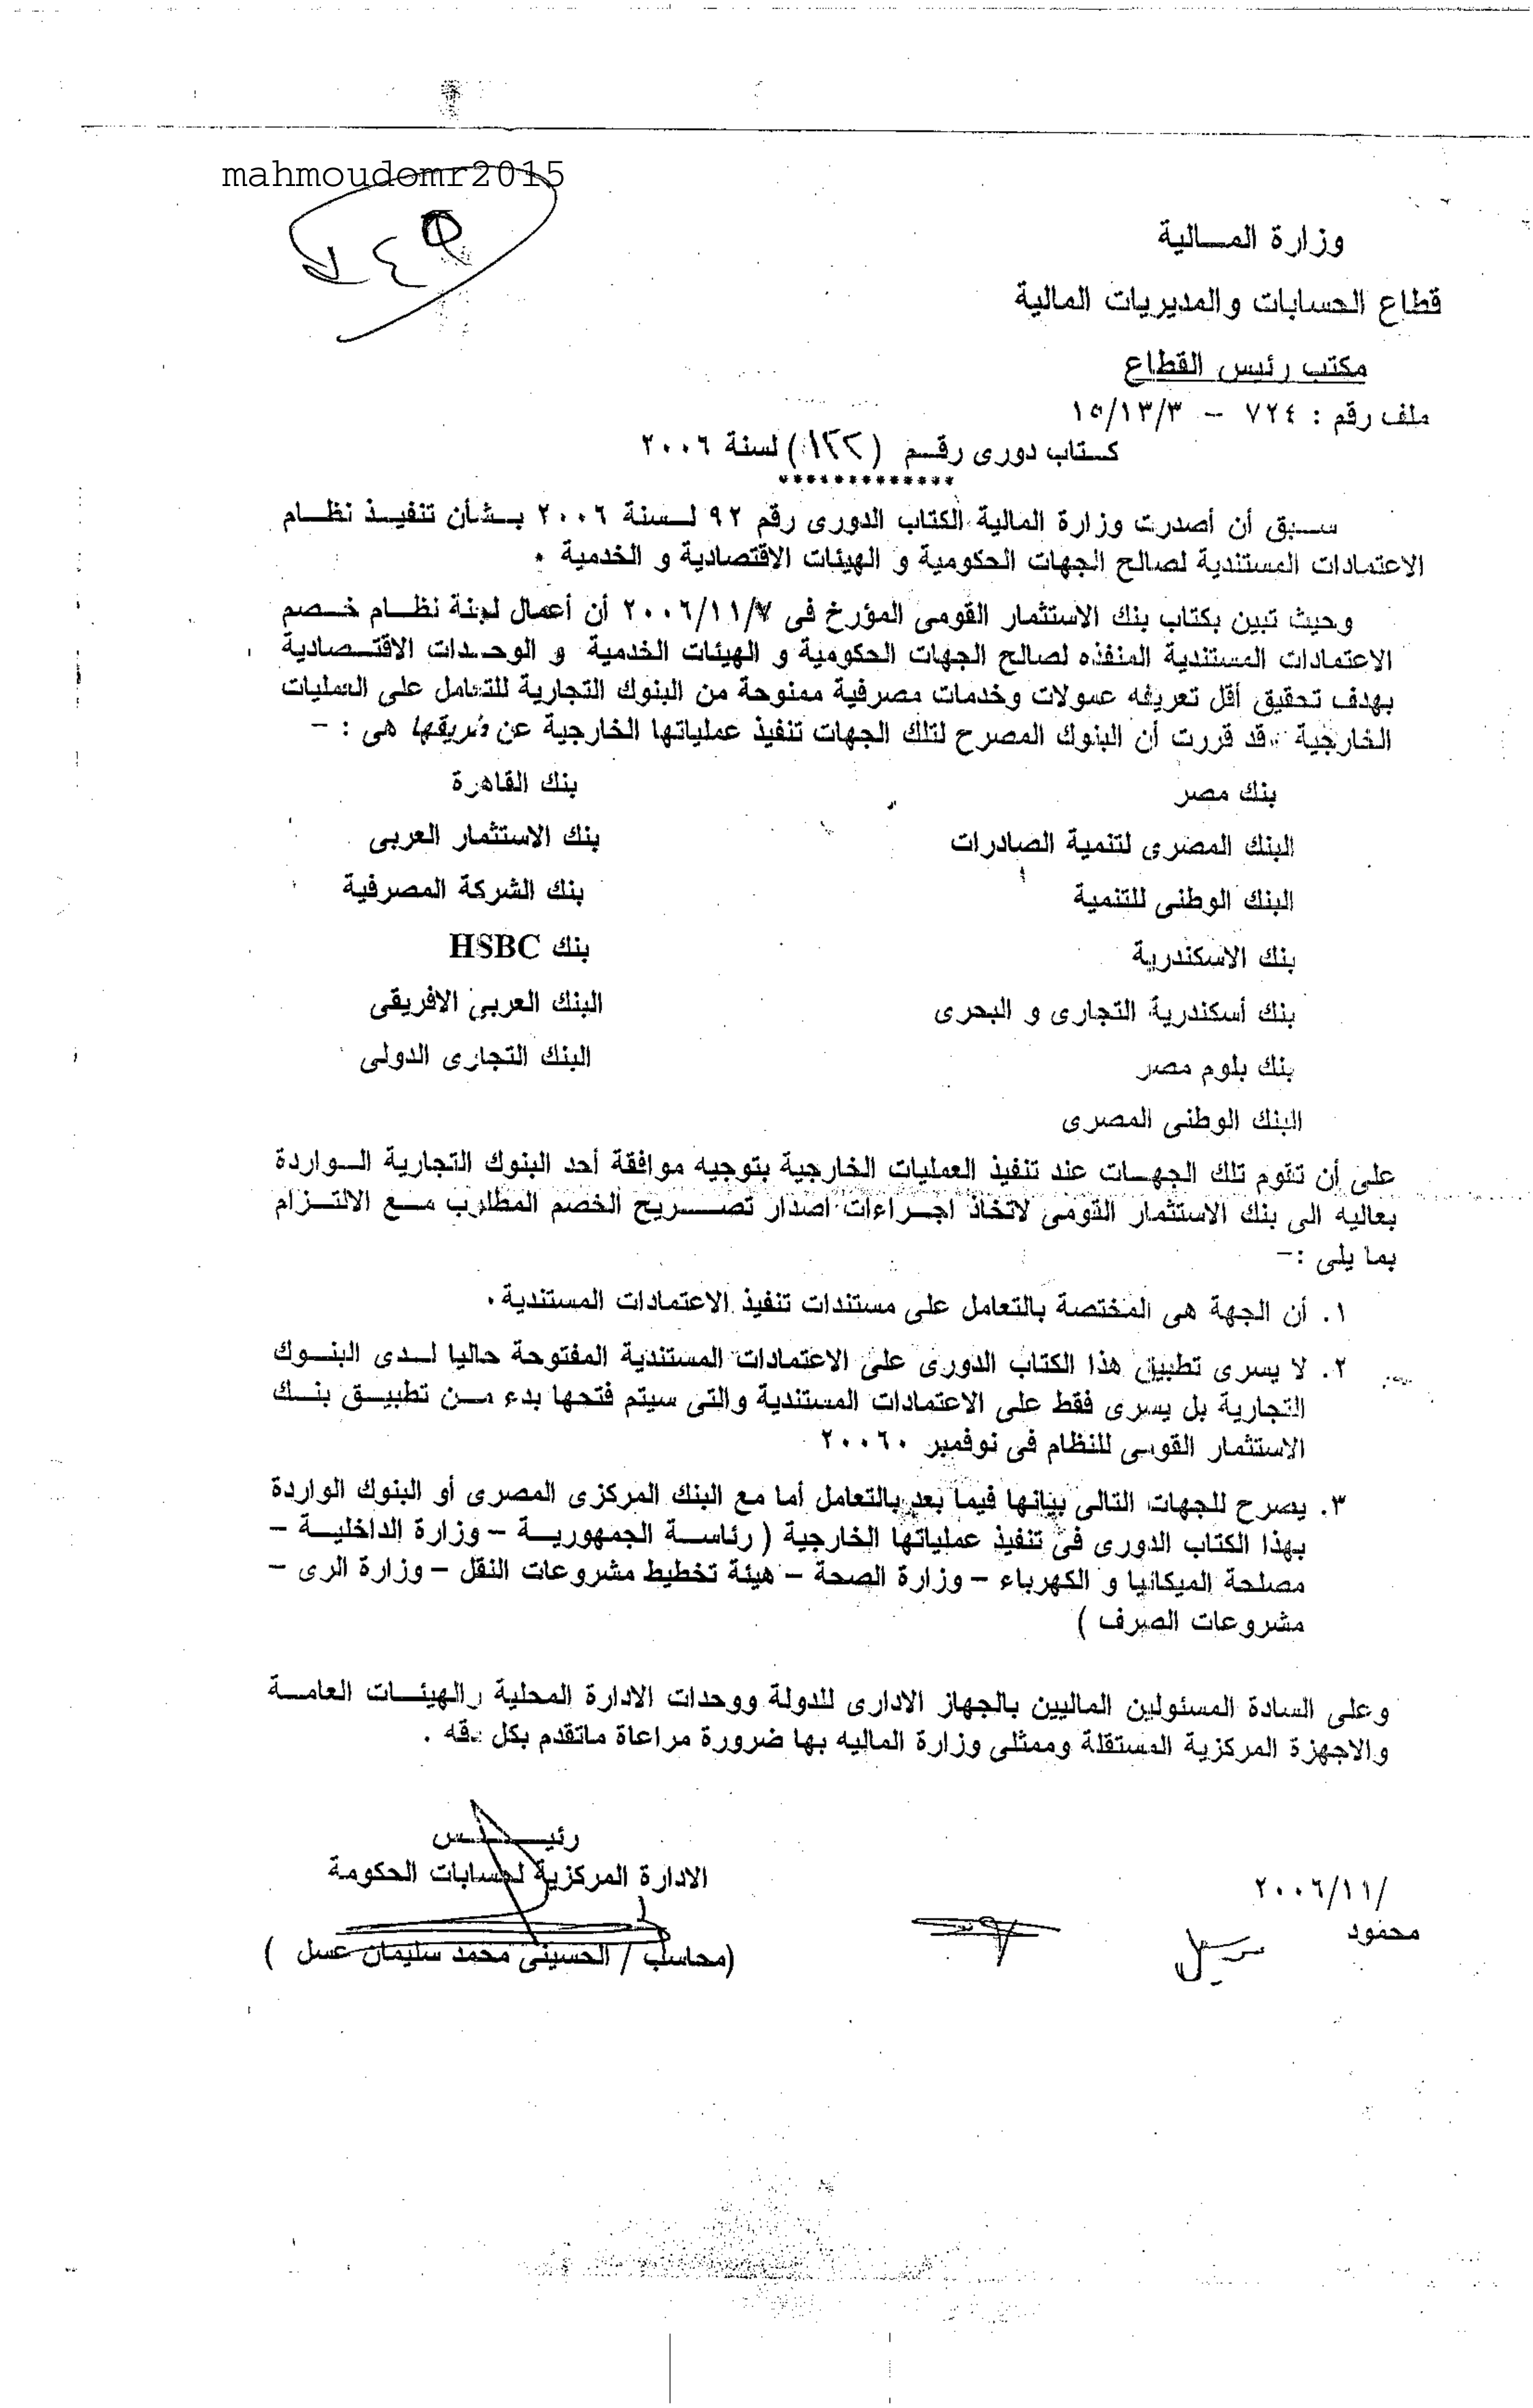 mahmoudomr2015
وزارة المالية
قطاع الحسابات والمديريات المالية
مكتب رئيس القطاع
ملف رقم : ٧٢٤ - ١٥/١٣/٣
كتاب دورى رقم (١٢٢) لسنة ٢٠٠٦
*************
سبق أن أصدرت وزارة المالية الكتاب الدورى رقم ٩٢ لسنة ٢٠٠٦ بشأن تنفيذ نظام
الاعتمادات المستندية لصالح الجهات الحكومية و الهيئات الاقتصادية و الخدمية ٠
وحيث تبين بكتاب بنك الاستثمار القومى المؤرخ فى ٢٠٠٦/١١/٧ أن أعمال لجنة نظام خصم
الاعتمادات المستندية المنفذه لصالح الجهات الحكومية و الهيئات الخدمية و الوحدات الاقتصادية
بهدف تحقيق أقل تعريفه عمولات وخدمات مصرفية ممنوحة من البنوك التجارية للتعامل على العمليات
الخارجية ٠قد قررت أن البنوك المصرح لتلك الجهات تنفيذ عملياتها الخارجية عن طريقها هى : -
بنك مصر بنك القاهرة
البنك المصرى لتنمية الصادرات بنك الاستثمار العربى
البنك الوطنى للتنمية بنك الشركة المصرفية
بنك الاسكندرية بنك HSBC
بنك أسكندرية التجارى و البحرى البنك العربى الافريقى
بنك بلوم مصر البنك التجارى الدولى
البنك الوطنى المصرى
على أن تقوم تلك الجهات عند تنفيذ العمليات الخارجية بتوجيه موافقة أحد البنوك التجارية الواردة
بعاليه الى بنك الاستثمار القومى لاتخاذ اجراءات اصدار تصريح الخصم المطلوب مع الالتزام
بما يلى :-
١. أن الجهة هى المختصة بالتعامل على مستندات تنفيذ الاعتمادات المستندية٠
٢. لا يسرى تطبيق هذا الكتاب الدورى على الاعتمادات المستندية المفتوحة حاليا لدى البنوك
التجارية بل يسرى فقط على الاعتمادات المستندية والتى سيتم فتحها بدء من تطبيق بنك
الاستثمار القومى للنظام فى نوفمبر ٢٠٠٦٠
٣. يصرح للجهات التالى بيانها فيما بعد بالتعامل أما مع البنك المركزى المصرى أو البنوك الواردة
بهذا الكتاب الدورى فى تنفيذ عملياتها الخارجية ( رئاسة الجمهورية - وزارة الداخلية -
مصلحة الميكانيا و الكهرباء - وزارة الصحة - هيئة تخطيط مشروعات النقل - وزارة الرى -
مشروعات الصرف )
وعلى السادة المسئولين الماليين بالجهاز الادارى للدولة ووحدات الادارة المحلية والهيئات العامة
والاجهزة المركزية المستقلة وممثلى وزارة الماليه بها ضرورة مراعاة ماتقدم بكل دقه .
رئيس
الادارة المركزية لحسابات الحكومة
/٢٠٠٦/١١
محمود
(محاسب / الحسينى محمد سليمان عسل )